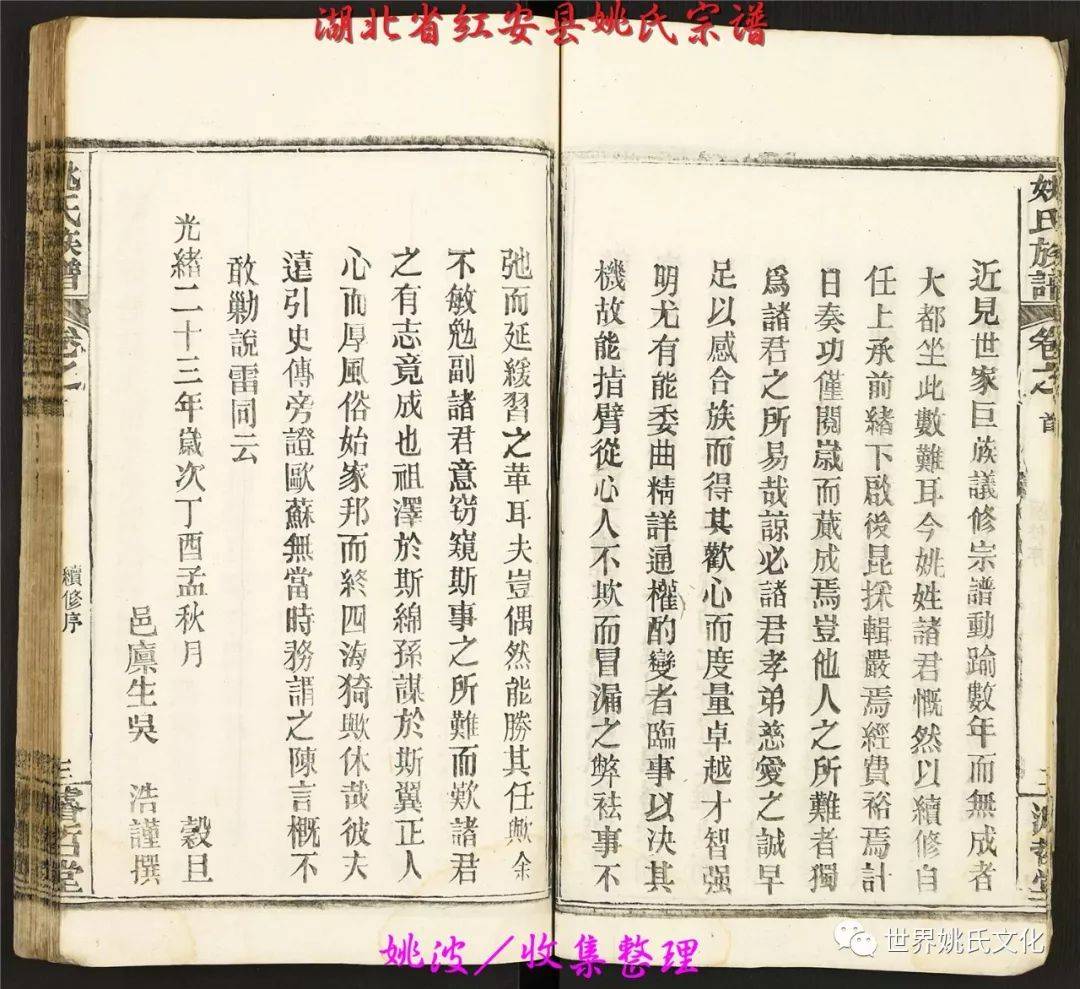 湖北省红安县姚氏宗谱
姚氏族譜
卷之
首
近見世家巨族議修宗譜動踰數年而無成者
大都坐此數難耳今姚姓諸君慨然以續修自
任上承前緒下啟後昆採輯嚴焉經費裕焉計
日奏功僅閱嵗而蕆成焉豈他人之所難者獨
爲諸君之所易哉諒必諸君孝弟慈愛之誠早
足以感合族而得其歡心而度量卓越才智强
明尤有能委曲精詳通權酌變者臨事以決其
機故能指臂從心人不欺而冒漏之弊袪事不
弛而延緩習之革耳夫豈偶然能勝其任歟余
不敏勉副諸君意窃窺斯事之所難而歎諸君
之有志竟成也祖澤於斯綿孫謀於斯翼正人
心而厚風俗始家邦而終四海猗歟休哉彼夫
遠引史傳旁證歐蘇無當時務謂之陳言概不
敢勦說雷同云
光緒二十三年嵗次丁酉孟秋月 穀旦
邑廪生吳 浩謹撰
姚氏族譜
卷之
續修序
三
堂
姚波／收集整理
世界姚氏文化